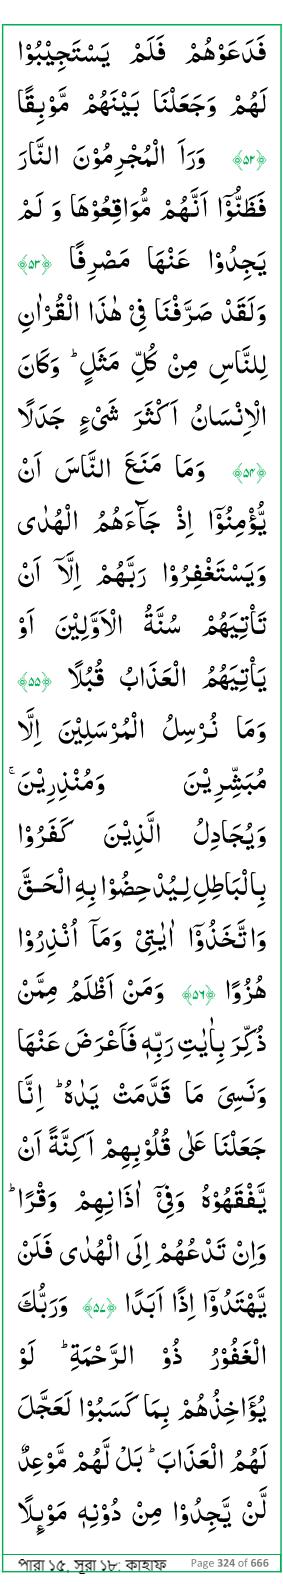 فَدَعَوْهُمْ فَلَمْ يَسْتَجِيْبُوْا
لَهُمْ وَجَعَلْنَا بَيْنَهُمْ مَّوْبِقًا
﴿۵۲﴾ وَرَاَ الْمُجْرِمُوْنَ النَّارَ
فَظَنُّوْۤا اَنَّهُمْ مُّوَاقِعُوْهَا وَ لَمْ
يَجِدُوْا عَنْهَا مَصْرِفًا ﴿۵۳﴾
وَلَقَدْ صَرَّفْنَا فِيْ هٰذَا الْقُرْاٰنِ
لِلنَّاسِ مِنْ كُلِّ مَثَلٍ ؕ وَكَانَ
الْاِنْسَانُ اَكْثَرَ شَيْءٍ جَدَلًا
﴿۵۴﴾ وَمَا مَنَعَ النَّاسَ اَنْ
يُّؤْمِنُوْۤا اِذْ جَآءَهُمُ الْهُدٰى
وَيَسْتَغْفِرُوْا رَبَّهُمْ اِلَّاۤ اَنْ
تَاْتِيَهُمْ سُنَّةُ الْاَوَّلِيْنَ اَوْ
يَاْتِيَهُمُ الْعَذَابُ قُبُلًا ﴿۵۵﴾
وَمَا نُرْسِلُ الْمُرْسَلِيْنَ اِلَّا
مُبَشِّرِيْنَ وَمُنْذِرِيْنَ ۚ
وَيُجَادِلُ الَّذِيْنَ كَفَرُوْا
بِالْبَاطِلِ لِيُدْحِضُوْا بِهِ الْحَقَّ
وَاتَّخَذُوْۤا اٰيٰتِيْ وَمَاۤ اُنْذِرُوْا
هُزُوًا ﴿۵۶﴾ وَمَنْ اَظْلَمُ مِمَّنْ
ذُكِّرَ بِاٰيٰتِ رَبِّهٖ فَاَعْرَضَ عَنْهَا
وَنَسِيَ مَا قَدَّمَتْ يَدٰهُ ؕ اِنَّا
جَعَلْنَا عَلٰى قُلُوْبِهِمْ اَكِنَّةً اَنْ
يَّفْقَهُوْهُ وَفِيْۤ اٰذَانِهِمْ وَقْرًا ؕ
وَاِنْ تَدْعُهُمْ اِلَى الْهُدٰى فَلَنْ
يَّهْتَدُوْۤا اِذًا اَبَدًا ﴿۵۷﴾ وَرَبُّكَ
الْغَفُوْرُ ذُو الرَّحْمَةِ ؕ لَوْ
يُؤَاخِذُهُمْ بِمَا كَسَبُوْا لَعَجَّلَ
لَهُمُ الْعَذَابَ ؕ بَلْ لَّهُمْ مَّوْعِدٌ
لَّنْ يَّجِدُوْا مِنْ دُوْنِهٖ مَوْىِٕلًا
পারা ১৫, সূরা ১৮: কাহাফ Page 324 of 666